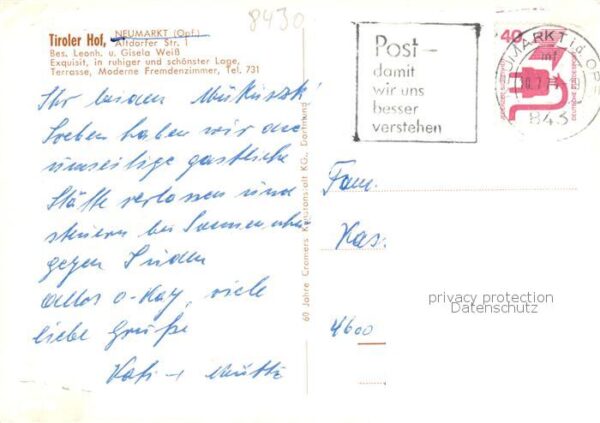 8430
Tiroler Hof, NEUMARKT (Opf.)
Altdorfer Str. 1
Bes. Leonh. u. Gisela Weiß
Exquisit, in ruhiger und schönster Lage,
Terrasse, Moderne Fremdenzimmer, Tel. 731
Ihr beiden
Soeben haben wir die
umseitige gastliche
Stätte verlassen und
steuern bei Sonnenschein
gegen Süden
alles o-kay, viele
liebe Grüße
Vati + Mutti
60 Jahre Cramers Kunstanstalt KG., Dortmund
Post-
damit
wir uns
besser
verstehen
40
NEUMARKT i.d. OPF
843
Fam.
Kas.
privacy protection
Datenschutz
4600